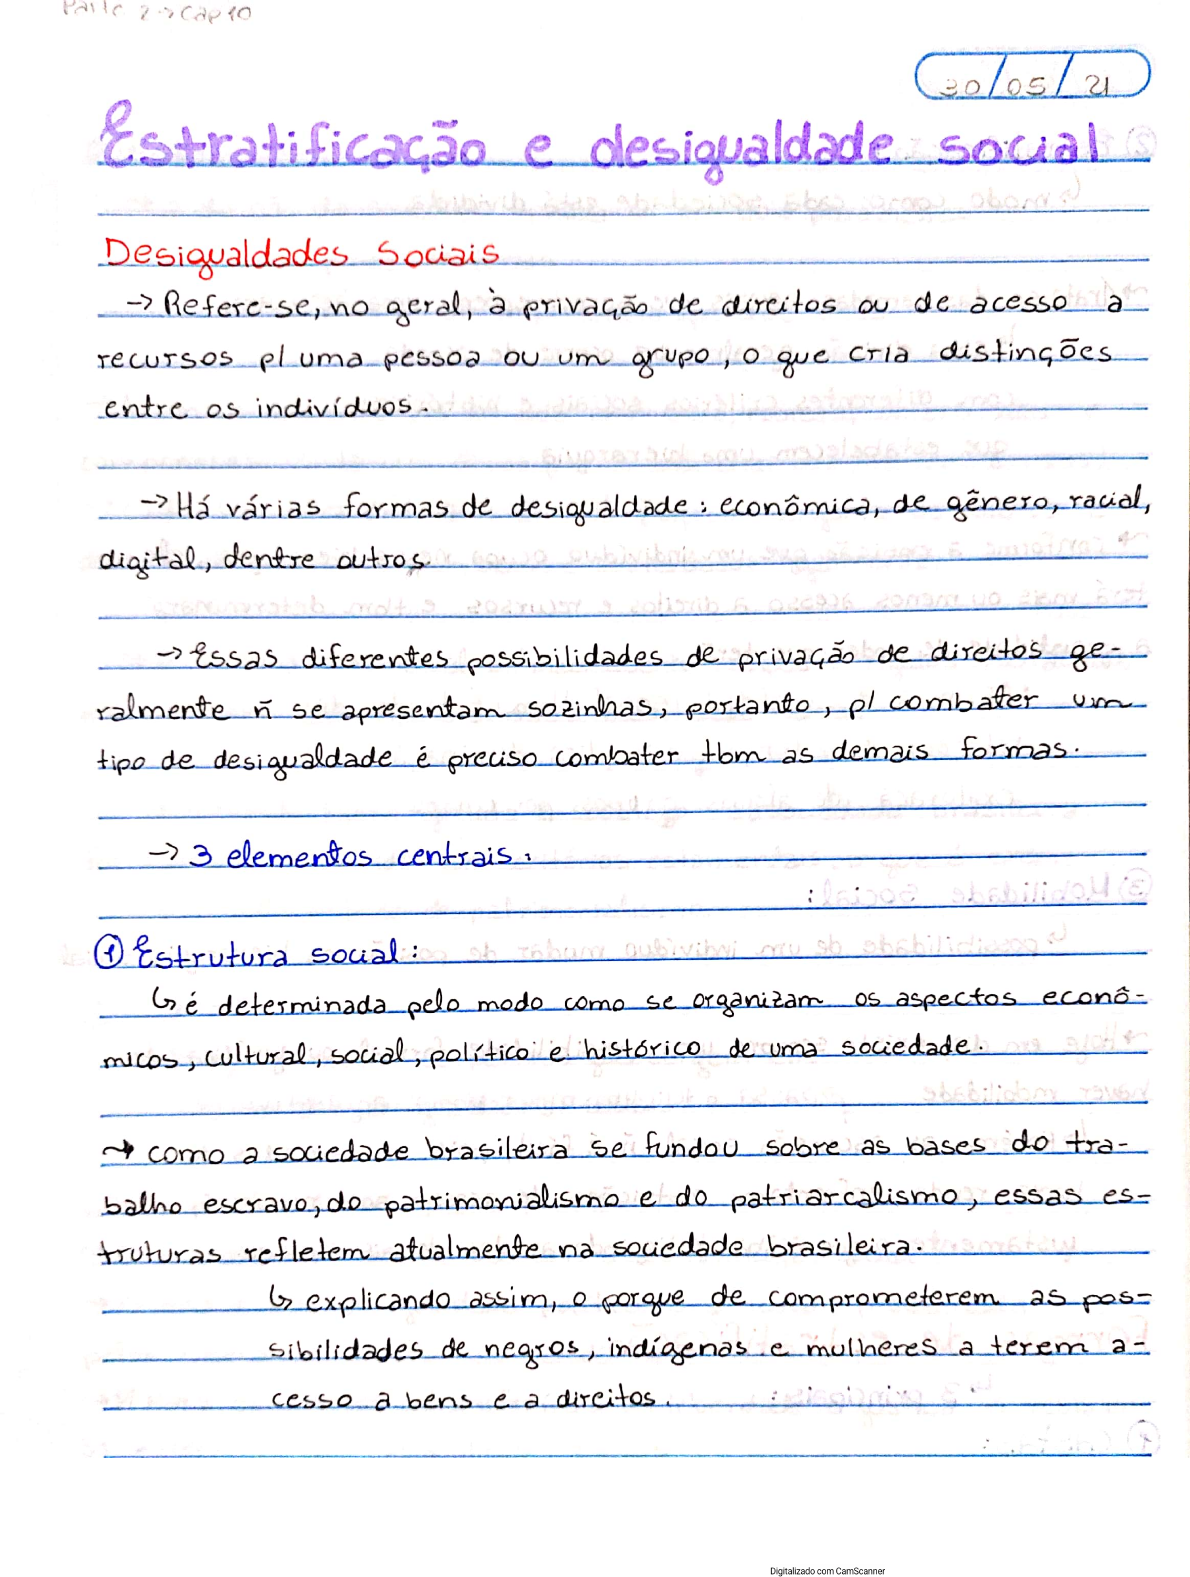 Parte 2 → Cap 10
30/05/21
Estratificação e desigualdade social
Desigualdades Sociais
→ Refere-se, no geral, à privação de direitos ou de acesso a
recursos p/ uma pessoa ou um grupo, o que cria distinções
entre os indivíduos.
→ Há várias formas de desigualdade: econômica, de gênero, racial,
digital, dentre outros.
→ Essas diferentes possibilidades de privação de direitos ge-
ralmente ñ se apresentam sozinhas, portanto, p/ combater um
tipo de desigualdade é preciso combater tbm as demais formas.
→ 3 elementos centrais:
① Estrutura social:
↳ é determinada pelo modo como se organizam os aspectos econô-
micos, cultural, social, político e histórico de uma sociedade.
→ como a sociedade brasileira se fundou sobre as bases do tra-
balho escravo, do patrimonialismo e do patriarcalismo, essas es-
truturas refletem atualmente na sociedade brasileira.
↳ explicando assim, o porque de comprometerem as pos-
sibilidades de negros, indígenas e mulheres a terem a-
cesso a bens e a direitos.
Digitalizado com CamScanner